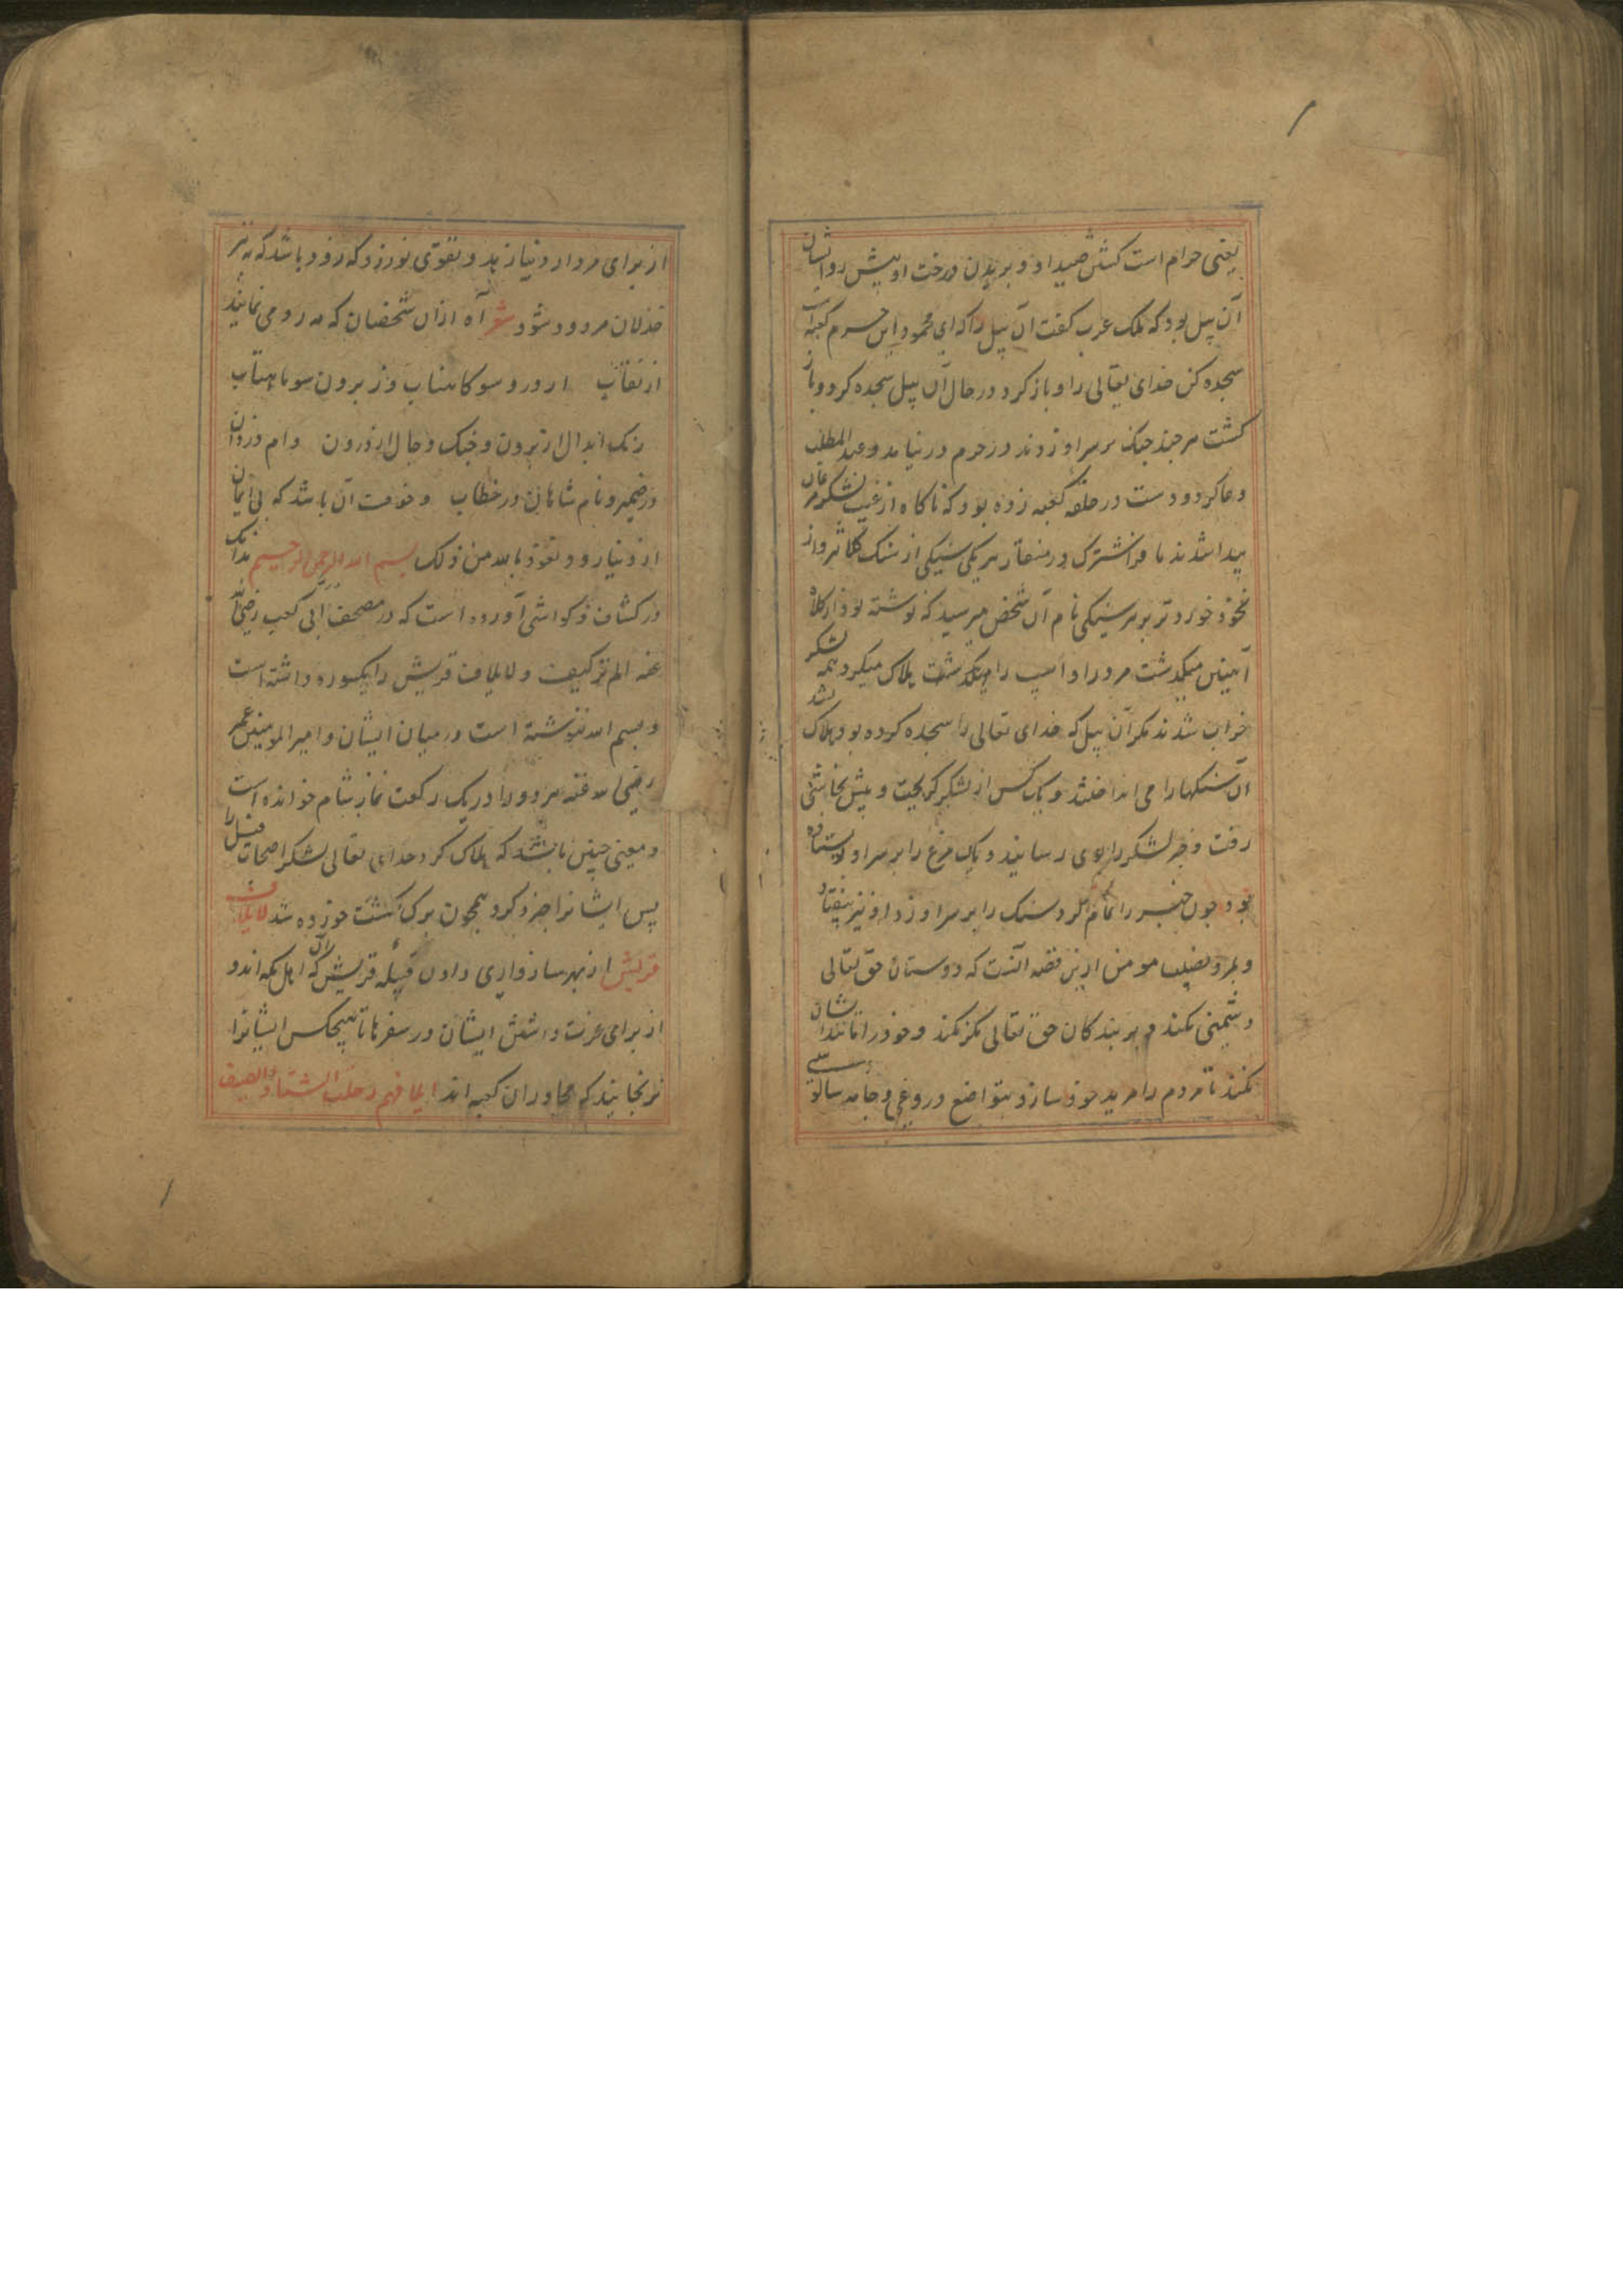 یعنی حرام است کشتن صید او و بریدن درخت او پیش رو ایشان
آن پیل بود که ملک عرب کفت آن پیل را که ای محمود این حرم کعبه است
سجده کن خدای تعالی را و باز کرد در حال آن پیل سجده کرد و باز
کشت هر چند چنک بر سر او زدند در حرم در نیامد و عبد المطلب
دعا کرد و دست در حلقه کعبه زده بود که ناکاه از غیب لشکر مرغان
پیدا شدند مانند فراشترک در منقار هر یکی سنکی از سنک کلاثر و از
نخود خوردتر بر هر سنکی نام آن شخص میرسید که نوشته بود از کلاه
آهنین میکذشت مرد را و اسپ را میکذشت هلاک میکرد همه لشکر
خراب شدند مکر آن پیل که خدای تعالی را سجده کرده بود هلاک نشد
آن سنکها را می انداختند و یک کس از لشکر کریخت و پیش نجاشی
رفت و خبر لشکر را بوی رسانید و یک مرغ را بر سر او فرستاده
بود چون خبر را تمام کرد سنک را بر سر او زد او نیز بیفتاد
و بمرد نصیب مومن ازین قصه آنست که دوستان حق تعالی
دشمنی نکند و بر بندکان حق تعالی مکر نکند و خود را مانند ایشان
نکند تا مردم را مرید خود سازد بتواضع دروغی و جامه سالوسی
از برای مردار دنیا زهد و تقوی نورزد که زود باشد که به تیر
خذلان مردود شود شعر آه ازان شخصان که مه رو می نمایند
از نقاب از درو سو کافتاب وز برون سو ماهتاب
رنک ابدال از برون و جنک دجال از درون دام دزدان
در ضمیر و نام شاهان در خطاب و خوفت آن باشد که بی ایمان
از دنیا رود نعوذ بالله من ذلک بسم الله الرحمن الرحیم بدانک
در کشاف و کواشی آورده است که در مصحف ابی کعب رضی الله
عنه الم تر کیف و لایلاف قریش را یکسوره داشته است
و بسم الله ننوشته است در میان ایشان و امیر المومنین عمر
رضی الله عنه هر دو را در یک رکعت نماز شام خوانده است
و معنی چنین باشد که هلاک کرد خدای تعالی لشکر اصحاب فیل را
پس ایشانرا خرد کرد همچون برک کشت خورده شد لایلاف
قریش از بهر سازواری دادن قبیله قریش را که اهل مکه اند و
از برای عزت داشتن ایشان در سفرها تا هیچکس ایشانرا
نرنجانید که مجاوران کعبه اند ایلافهم رحلة الشتاء والصیف